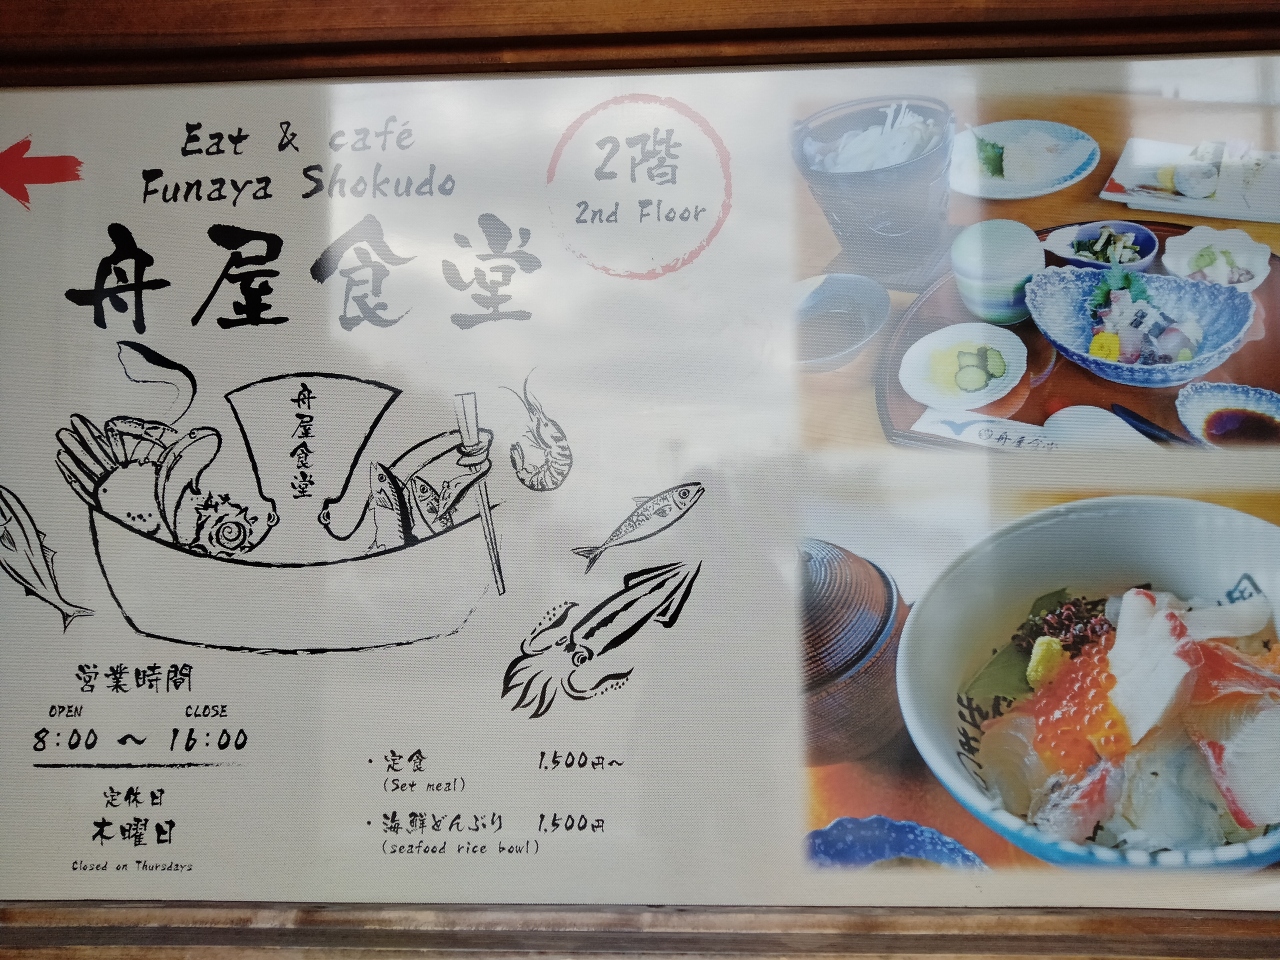 Eat & café
Funaya Shokudo
舟屋食堂
2階
2nd Floor
舟屋食堂
営業時間
OPEN CLOSE
8:00 ～ 16:00
定休日
木曜日
Closed on Thursdays
・定食 1,500円～
(Set meal)
・海鮮どんぶり 1,500円
(seafood rice bowl)
舟屋食堂